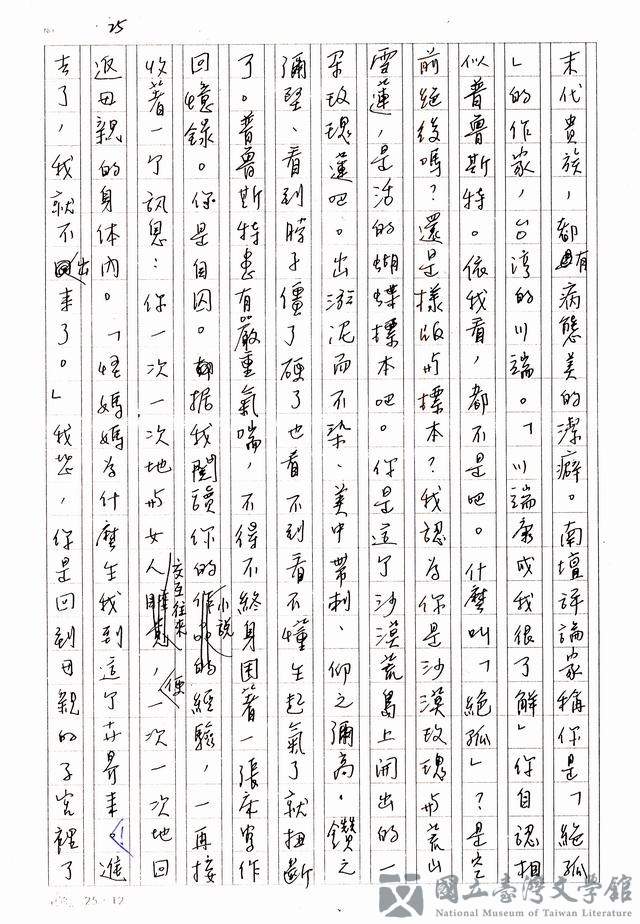 25
末代貴族，都有病態美的潔癖。南壇評論家稱你是「絕孤
」的作家，台灣的川端。「川端康成我很了解」你自認相
似普魯斯特。依我看，都不是吧。什麼叫「絕孤」？是空
前絕後嗎？還是樣版與標本？我認為你是沙漠玫瑰與荒山
雪蓮，是活的蝴蝶標本吧。你是這個沙漠荒島上開出的一
朵玫瑰蓮吧。出淤泥而不染、美中帶刺、仰之彌高、鑽之
彌堅、看到脖子僵了硬了也看不到看不懂生起氣了就扭斷
了。普魯斯特患有嚴重氣喘，不得不終身困著一張床寫作
回憶錄。你是自囚。據我閱讀你的小說的經驗，一再接
收著一個訊息：你一次一次地與女人交互往來，便一次一次地回
返母親的身體內。「怪媽媽為什麼生我到這個世界來！進
去了，我就不出來了。」我想，你是回到母親的子宮裡了
25·12
國立臺灣文學館
National Museum of Taiwan Literature